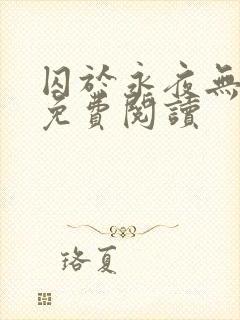 囚於永夜無
免費閱讀
珞夏